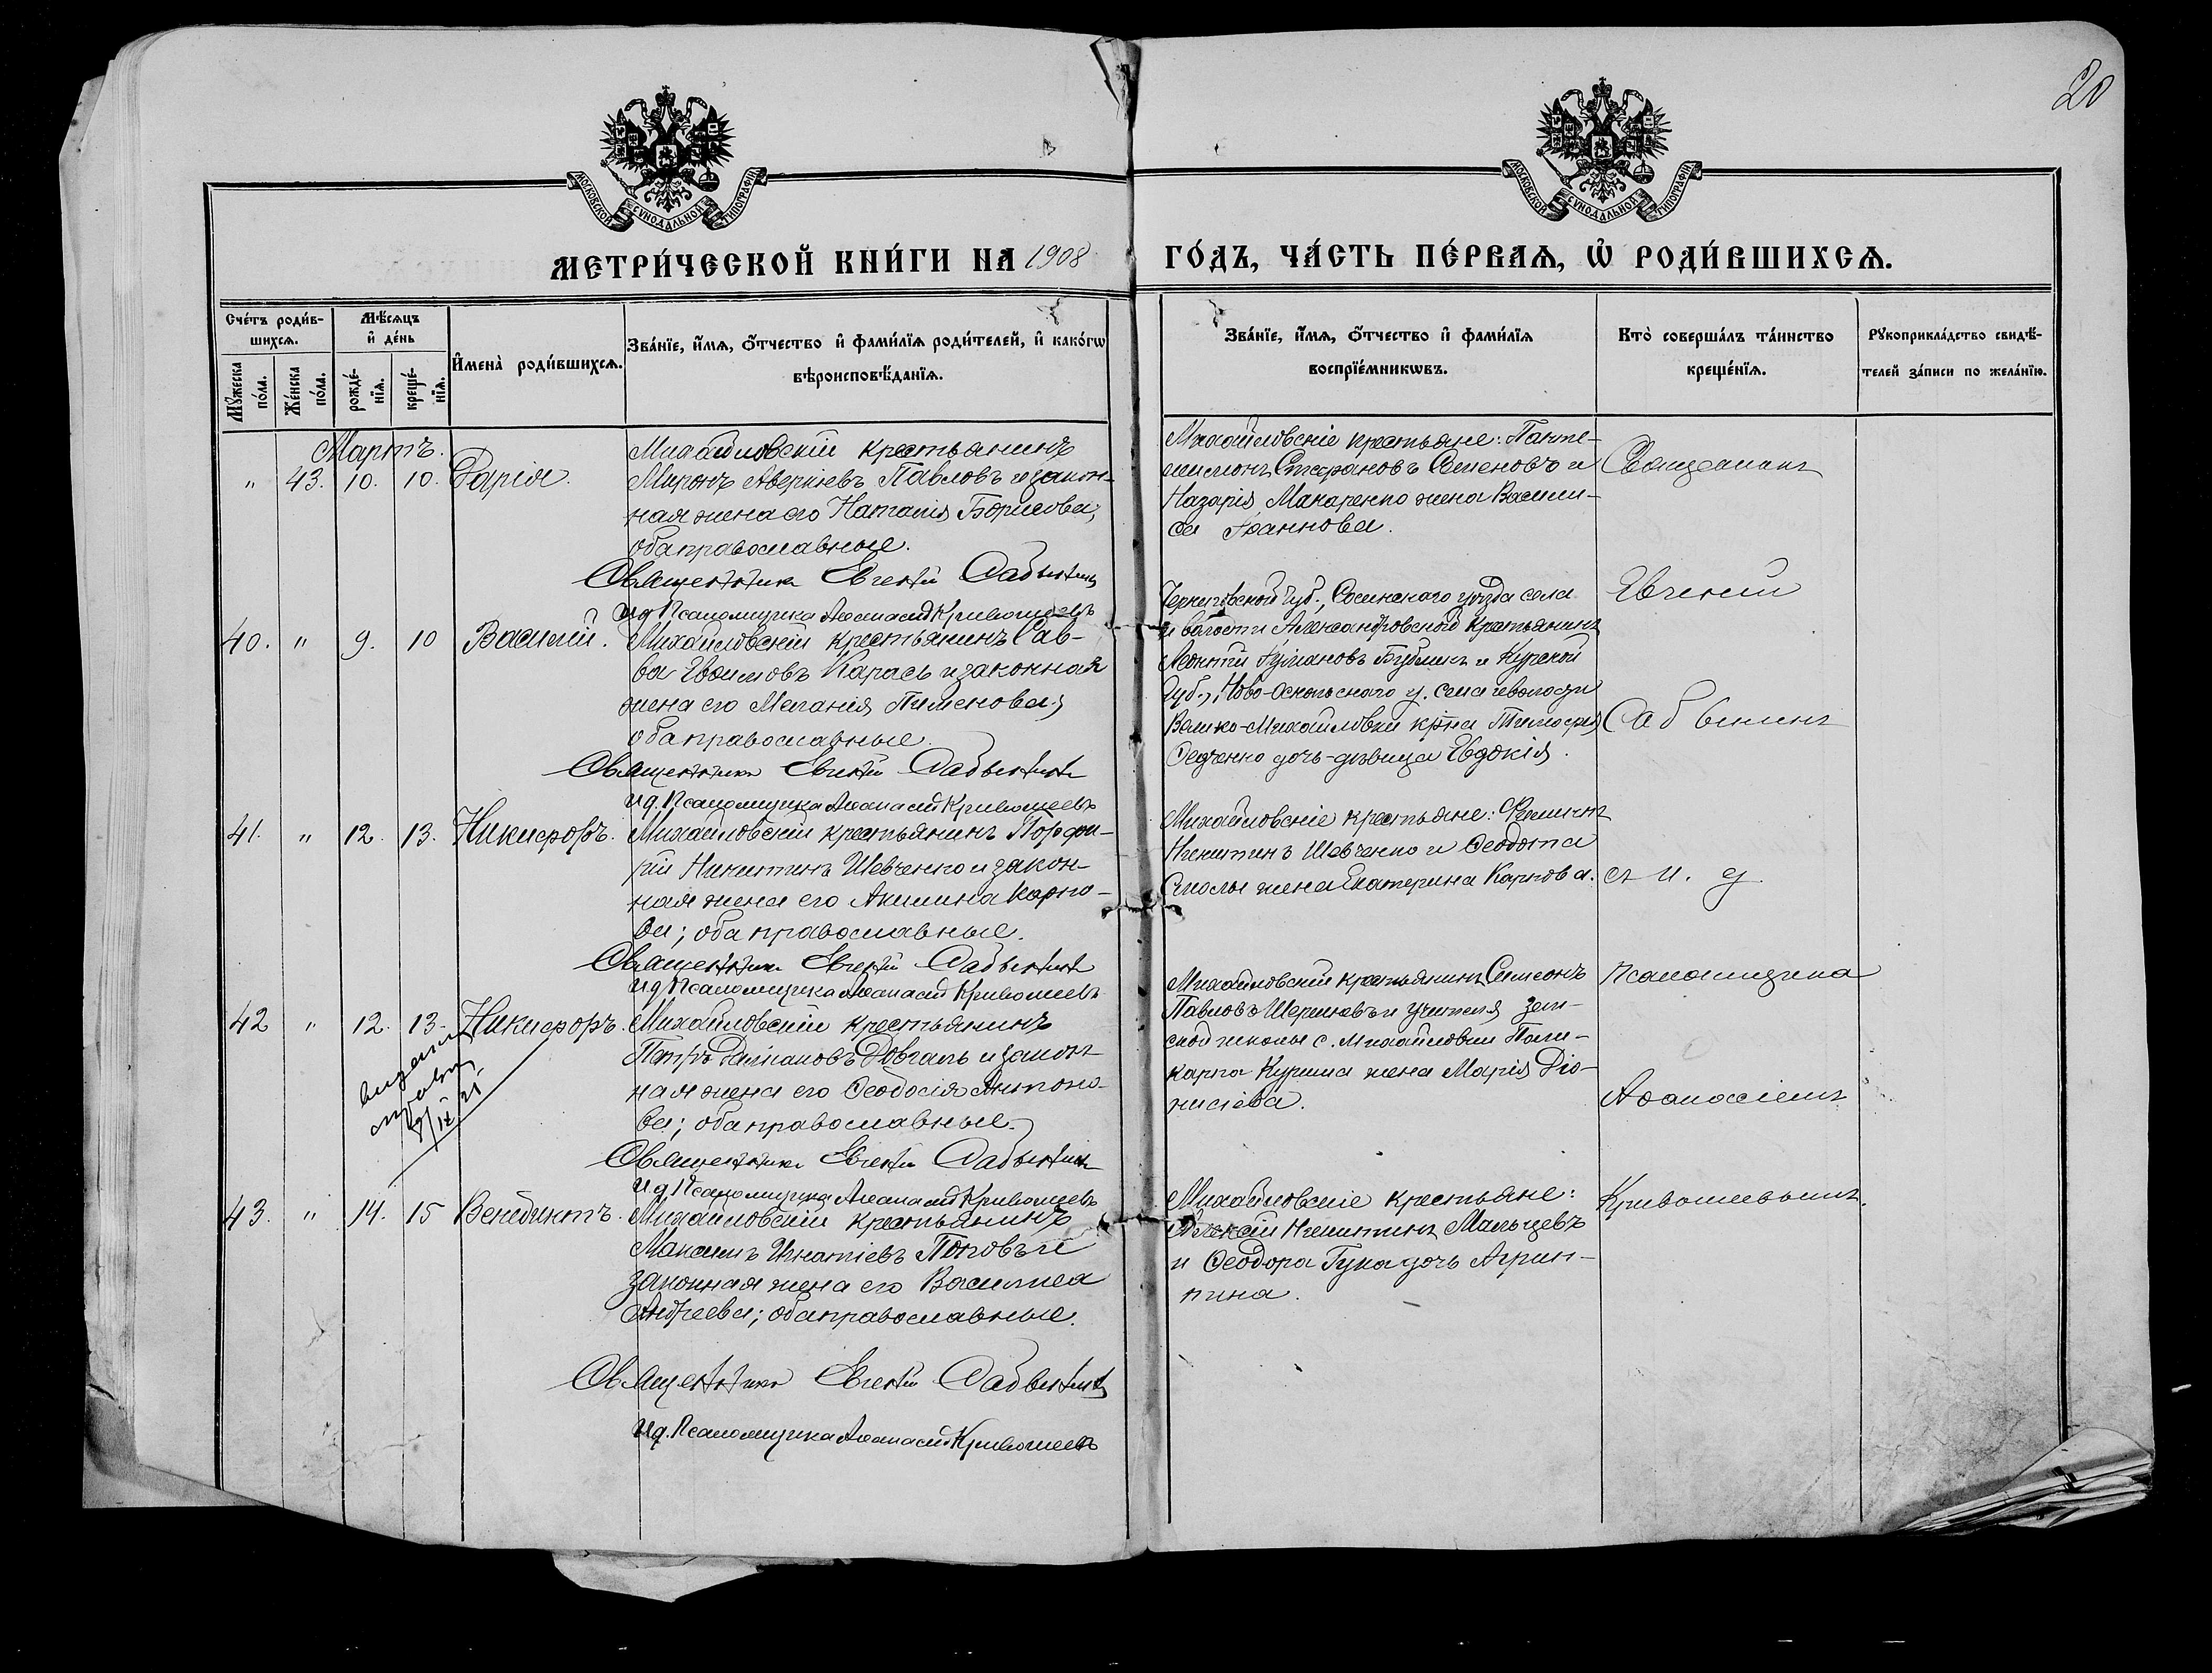 20
МОСКОВСКОЙ СѴНОДАЛЬНОЙ ТИПОГРАФІИ
МОСКОВСКОЙ СѴНОДАЛЬНОЙ ТИПОГРАФІИ
МЕТРИ́ЧЕСКОЙ КНИ́ГИ НА 1908 ГО́ДЪ, ЧА́СТЬ ПЕ́РВАѦ, Ѽ РОДИ́ВШИХСѦ.
Сче́тъ роди́в-
шихсѧ.
Мꙋ́жеска по́ла.
Же́нска по́ла.
Мѣ́сѧцъ и҆ де́нь
рожде́-
нїѧ.
креще́-
нїѧ.
И҆мена̀ роди́вшихсѧ.
Зва́нїе, и҆́мѧ, ѻ҆́тчество и҆ фами́лїѧ роди́телей, и҆ како́гѡ
вѣроисповѣ́данїѧ.
Зва́нїе, и҆́мѧ, ѻ҆́тчество и҆ фами́лїѧ
воспрїе́мникѡвъ.
Кто̀ соверша́лъ та́инство
креще́нїѧ.
Рꙋкоприкла́дство свидѣ́-
телей за́писи по жела́нїю.
Мартъ.
" 43. 10. 10. Дарія.
Михайловскій крестьянинъ
Миронъ Аверкіевъ Павловъ и закон-
ная жена его Наталія Борисова,
оба православные.
Священникъ Евгеній Сабынинъ
И д. Псаломщика Аѳанасій Кривошеевъ
Михайловскіе крестьяне: Панте-
леимонъ Стефановъ Семеновъ и
Назарія Макаренко жена Васили-
са Іоаннова.
Священникъ
40. " 9. 10 Василій.
Михайловскій крестьянинъ Сав-
ва Евѳимовъ Карась и законная
жена его Меланія Пименова;
оба православные.
Священникъ Евгеній Сабынинъ
И д. Псаломщика Аѳанасій Кривошеевъ
Черниговской губ., Сосницкаго уѣзда села
и волости Александровской крестьянинъ
Леонтій Бублик и Курской
Губ., Ново-Оскольскаго у. села и волости
Велико-Михайловки кр-на Тимофея
дочь-дѣвица Евдокія.
Евгеній
Сабынинъ
41. " 12. 13. Никифоръ.
Михайловскій крестьянинъ Порфи-
рій Никитинъ Шевченко и закон-
ная жена его Акилина Карпо-
ва; оба православные.
Священникъ Евгеній Сабынинъ
И д Псаломщика Аѳанасій Кривошеевъ
Михайловскіе крестьяне:
Никитинъ Шевченко и Ѳеодота
жена Екатерина Карпова.
съ и. д.
42 " 12. 13. Никифоръ.
Михайловскій крестьянинъ
Петръ Даміановъ Довгаль и закон-
ная жена его Ѳеодосія Антоно-
ва; оба православные.
Священникъ Евгеній Сабынинъ
И д Псаломщика Аѳанасій Кривошеевъ
Михайловскій крестьянинъ Симеонъ
Павловъ и учителя зем-
ской школы с. Михайловки Поли-
карпа жена Марія Діо-
нисіева.
Псаломщика
Аѳанасіемъ
43. " 14. 15 Венедиктъ.
Михайловскій крестьянинъ
Максимъ Игнатіевъ Поповъ и
законная жена его Василиса
Андреева; оба православные.
Священникъ Евгеній Сабынинъ
И д. Псаломщика Аѳанасій Кривошеевъ
Михайловскіе крестьяне:
Алексій Никитинъ Мальцевъ
и Ѳеодора Гука дочь Агрип-
пина.
Кривошеевымъ.